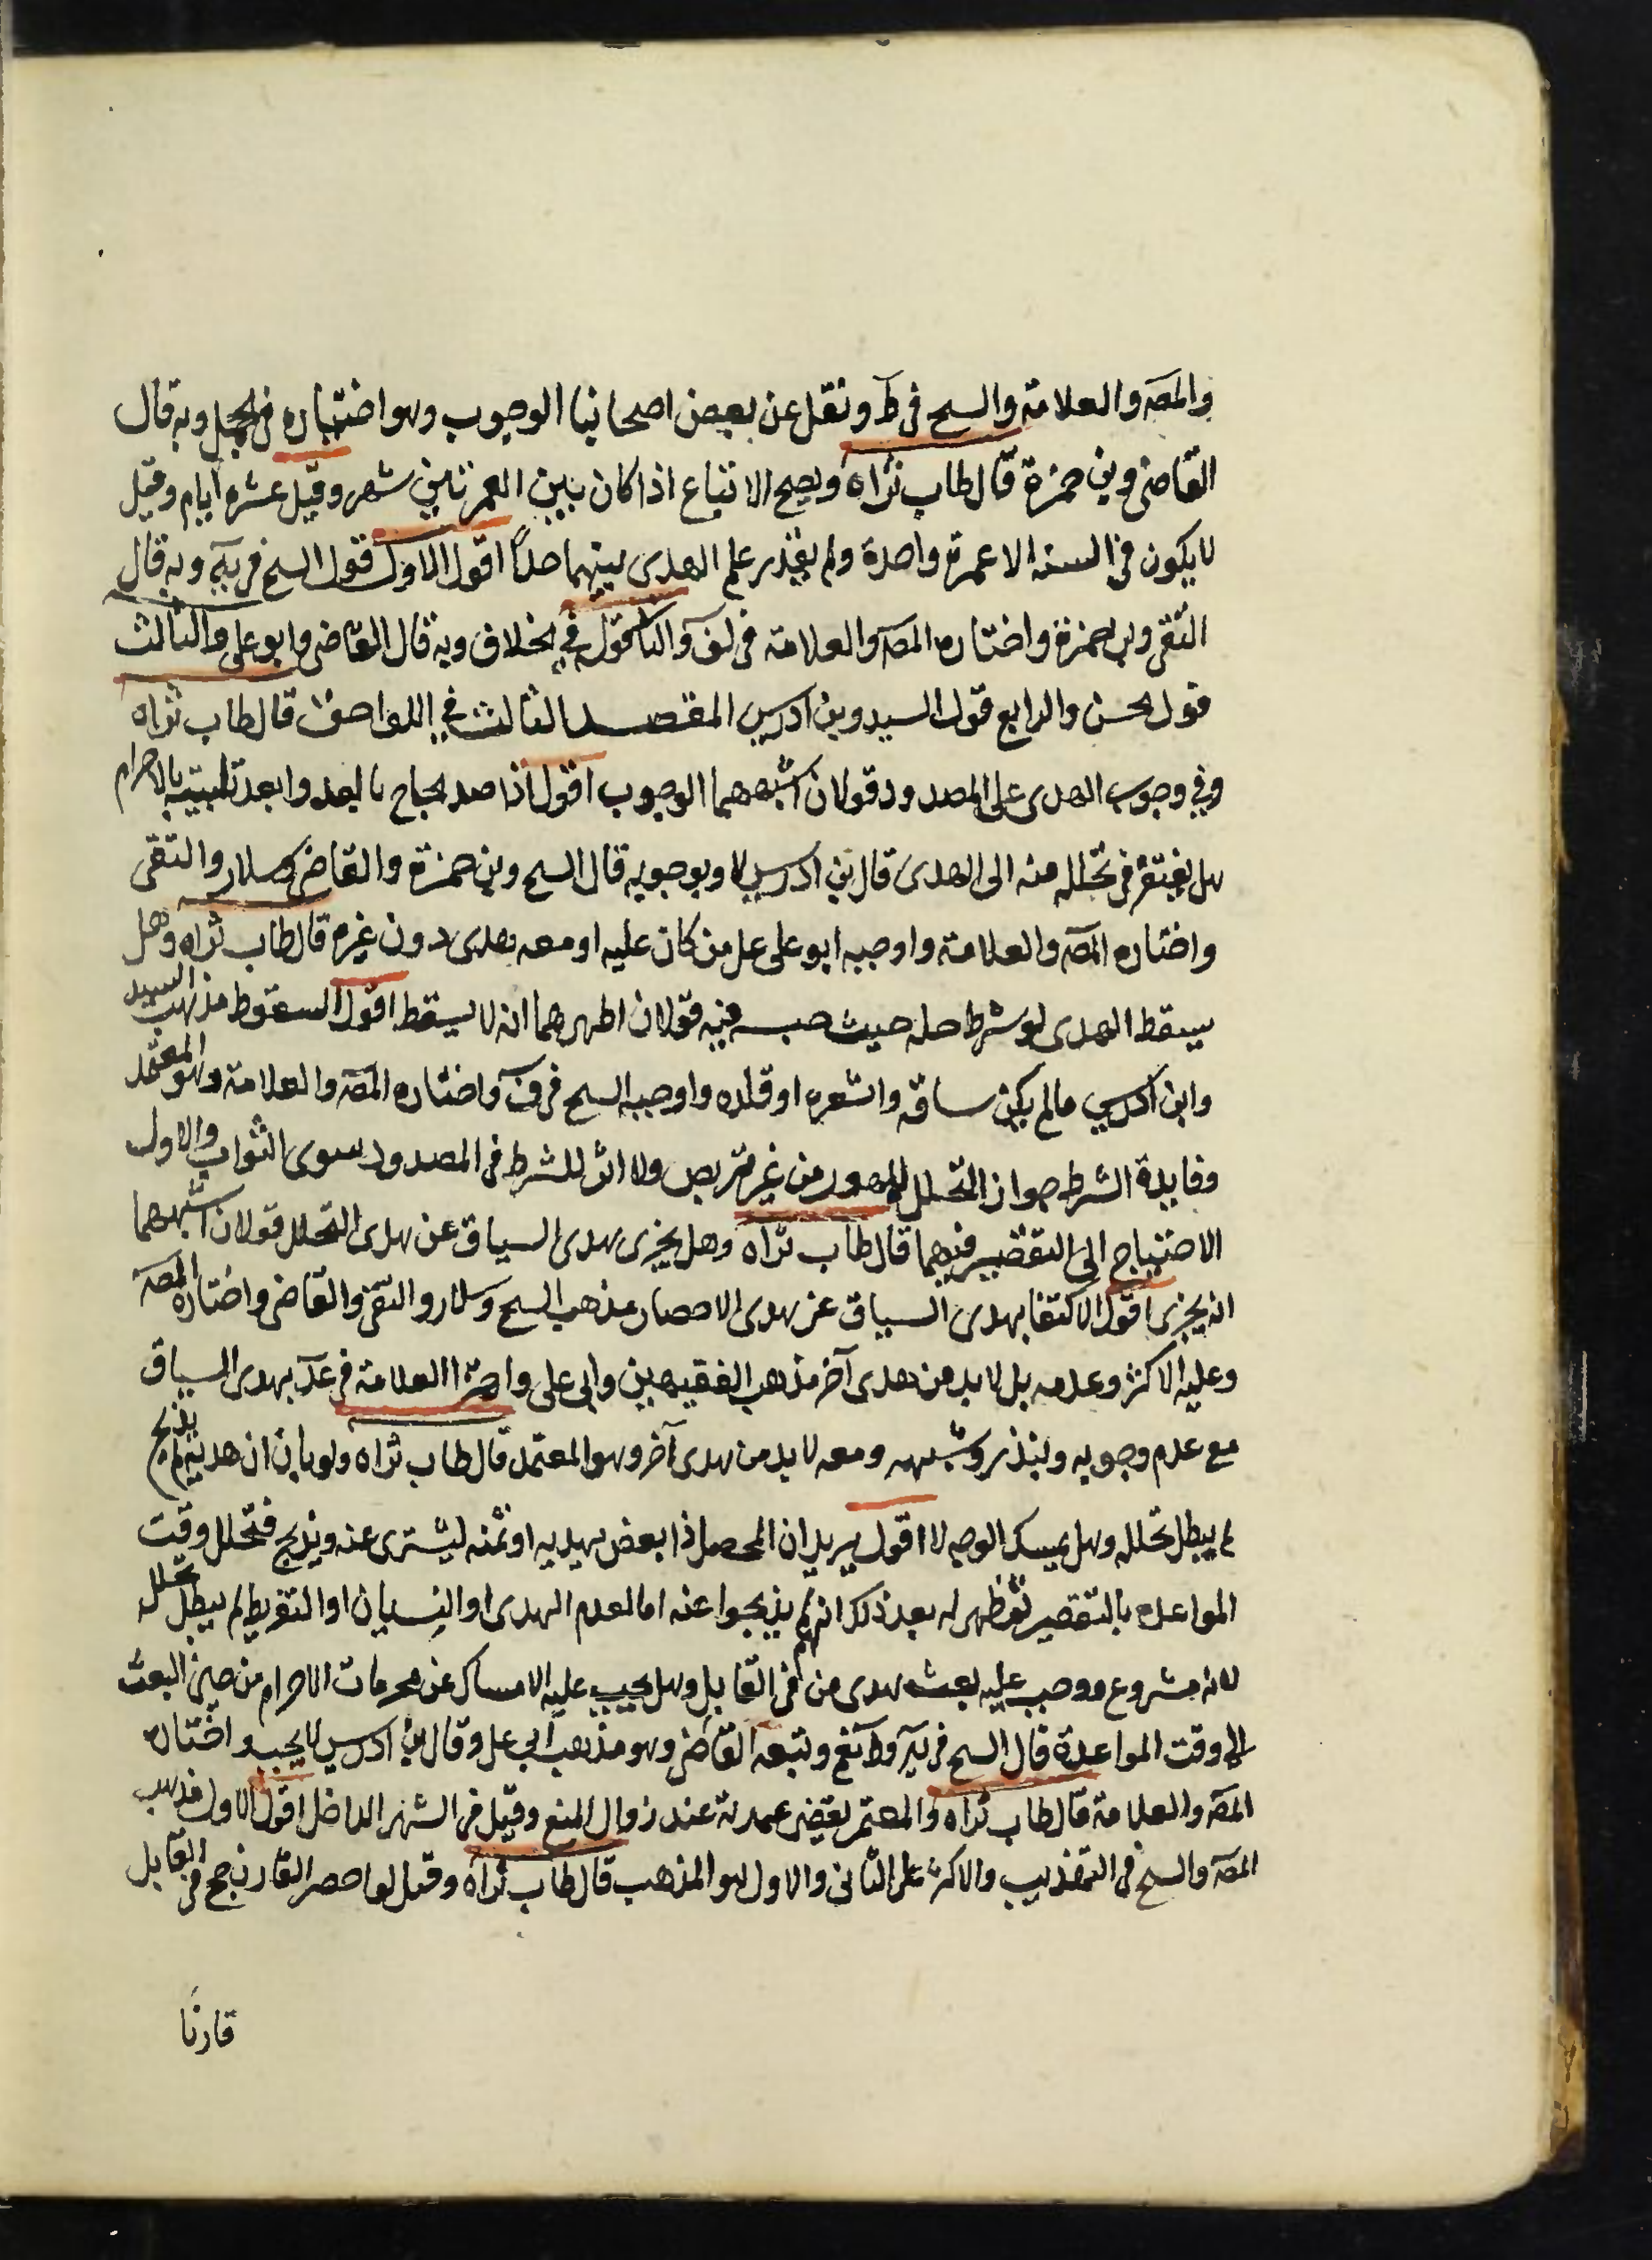 والمصه والعلامة والسح فى ط ونقل عن بعض اصحابنا الوجوب وهو اختياره فى الجمل وبه قال
القاضى وبن حمزة قال طاب ثراه ويصح الاتباع اذا كان بين العمرتين شهر وقيل عشره ايام وقيل
لا يكون فى السنه الا عمرة واحدة ولم يقدر علم الهدى بينهما حدا اقول الاول قول السح فى يه وبه قال
التقى وبن حمزة واختاره المصه والعلامة فى لف والثانى قوله فى الخلاف وبه قال القاضى وابو على والثالث
قول الحسن والرابع قول السيد وبن ادريس المقصد الثالث فى اللواحق قال طاب ثراه
وفى وجوب الهدى على المصدود قولان اشبههما الوجوب اقول اذا صد الحاج بالعدو بعد تلبيته بالاحرام
هل يفتقر فى تحلله منه الى الهدى قال بن ادريس لا وبوجوبه قال السح وبن حمزة والقاضى وسلار والتقى
واختاره المصه والعلامة واوجبه ابو على على من كان عليه او معه هدى دون غيره قال طاب ثراه وهل
يسقط الهدى لو شرط حله حيث حبسه فيه قولان اظهرهما انه لا يسقط اقول السقوط مذهب السيد
وابن ادريس ما لم يكن ساقه واشعره او قلده واوجبه السح فى ف واختاره المصه والعلامة وهو المعتمد
وفايدة الشرط جواز التحلل للمحصور من غير تربص ولا اثر للشرط فى المصدود سوى الثواب والاول
الاحتياج الى التقصير فيهما قال طاب ثراه وهل يجزى هدى السياق عن هدى التحلل قولان اشبههما
انه يجزى اقول الاكتفا بهدى السياق عن هدى الاحصار مذهب السح وسلار والتقى والقاضى واختاره المصه
وعليه الاكثر وعدمه بل لا بد من هدى آخر مذهب الفقيهين وابى على واجتزا العلامة فى عد بهدى السياق
مع عدم وجوبه ولبنذر وشبهه ومعه لا بد من هدى آخر وهو المعتمد قال طاب ثراه ولو بان ان هديه لم يذبح
لم يبطل تحلله وهل يمسك الوجه لا اقول يريد ان المحصر اذا بعض بهديه او ثمنه ليشترى عنه ويذبح فتحلل وقت
المواعده بالتقصير ثم ظهر له بعد ذلك انهم لم يذبحوا عنه اما لعدم الهدى او النسيان او التفريط لم يبطل تحلله
لانه مشروع ووجب عليه بعث هدى من فى القابل وهل يجب عليه الامساك عن محرمات الاحرام من حين البعث
الى وقت المواعدة قال السح فى يه وط نعم وتبعه القاضى وهو مذهب ابى على وقال بن ادريس لا يجب واختاره
المصه والعلامة قال طاب ثراه والمعتمر يقضى عمرته عند زوال المنع وقيل فى الشهر الداخل اقول الاول مذهب
المصه والسح فى التهذيب والاكثر على الثانى والاول هو المذهب قال طاب ثراه وقيل لو احصر القارن حج فى القابل
قارنا